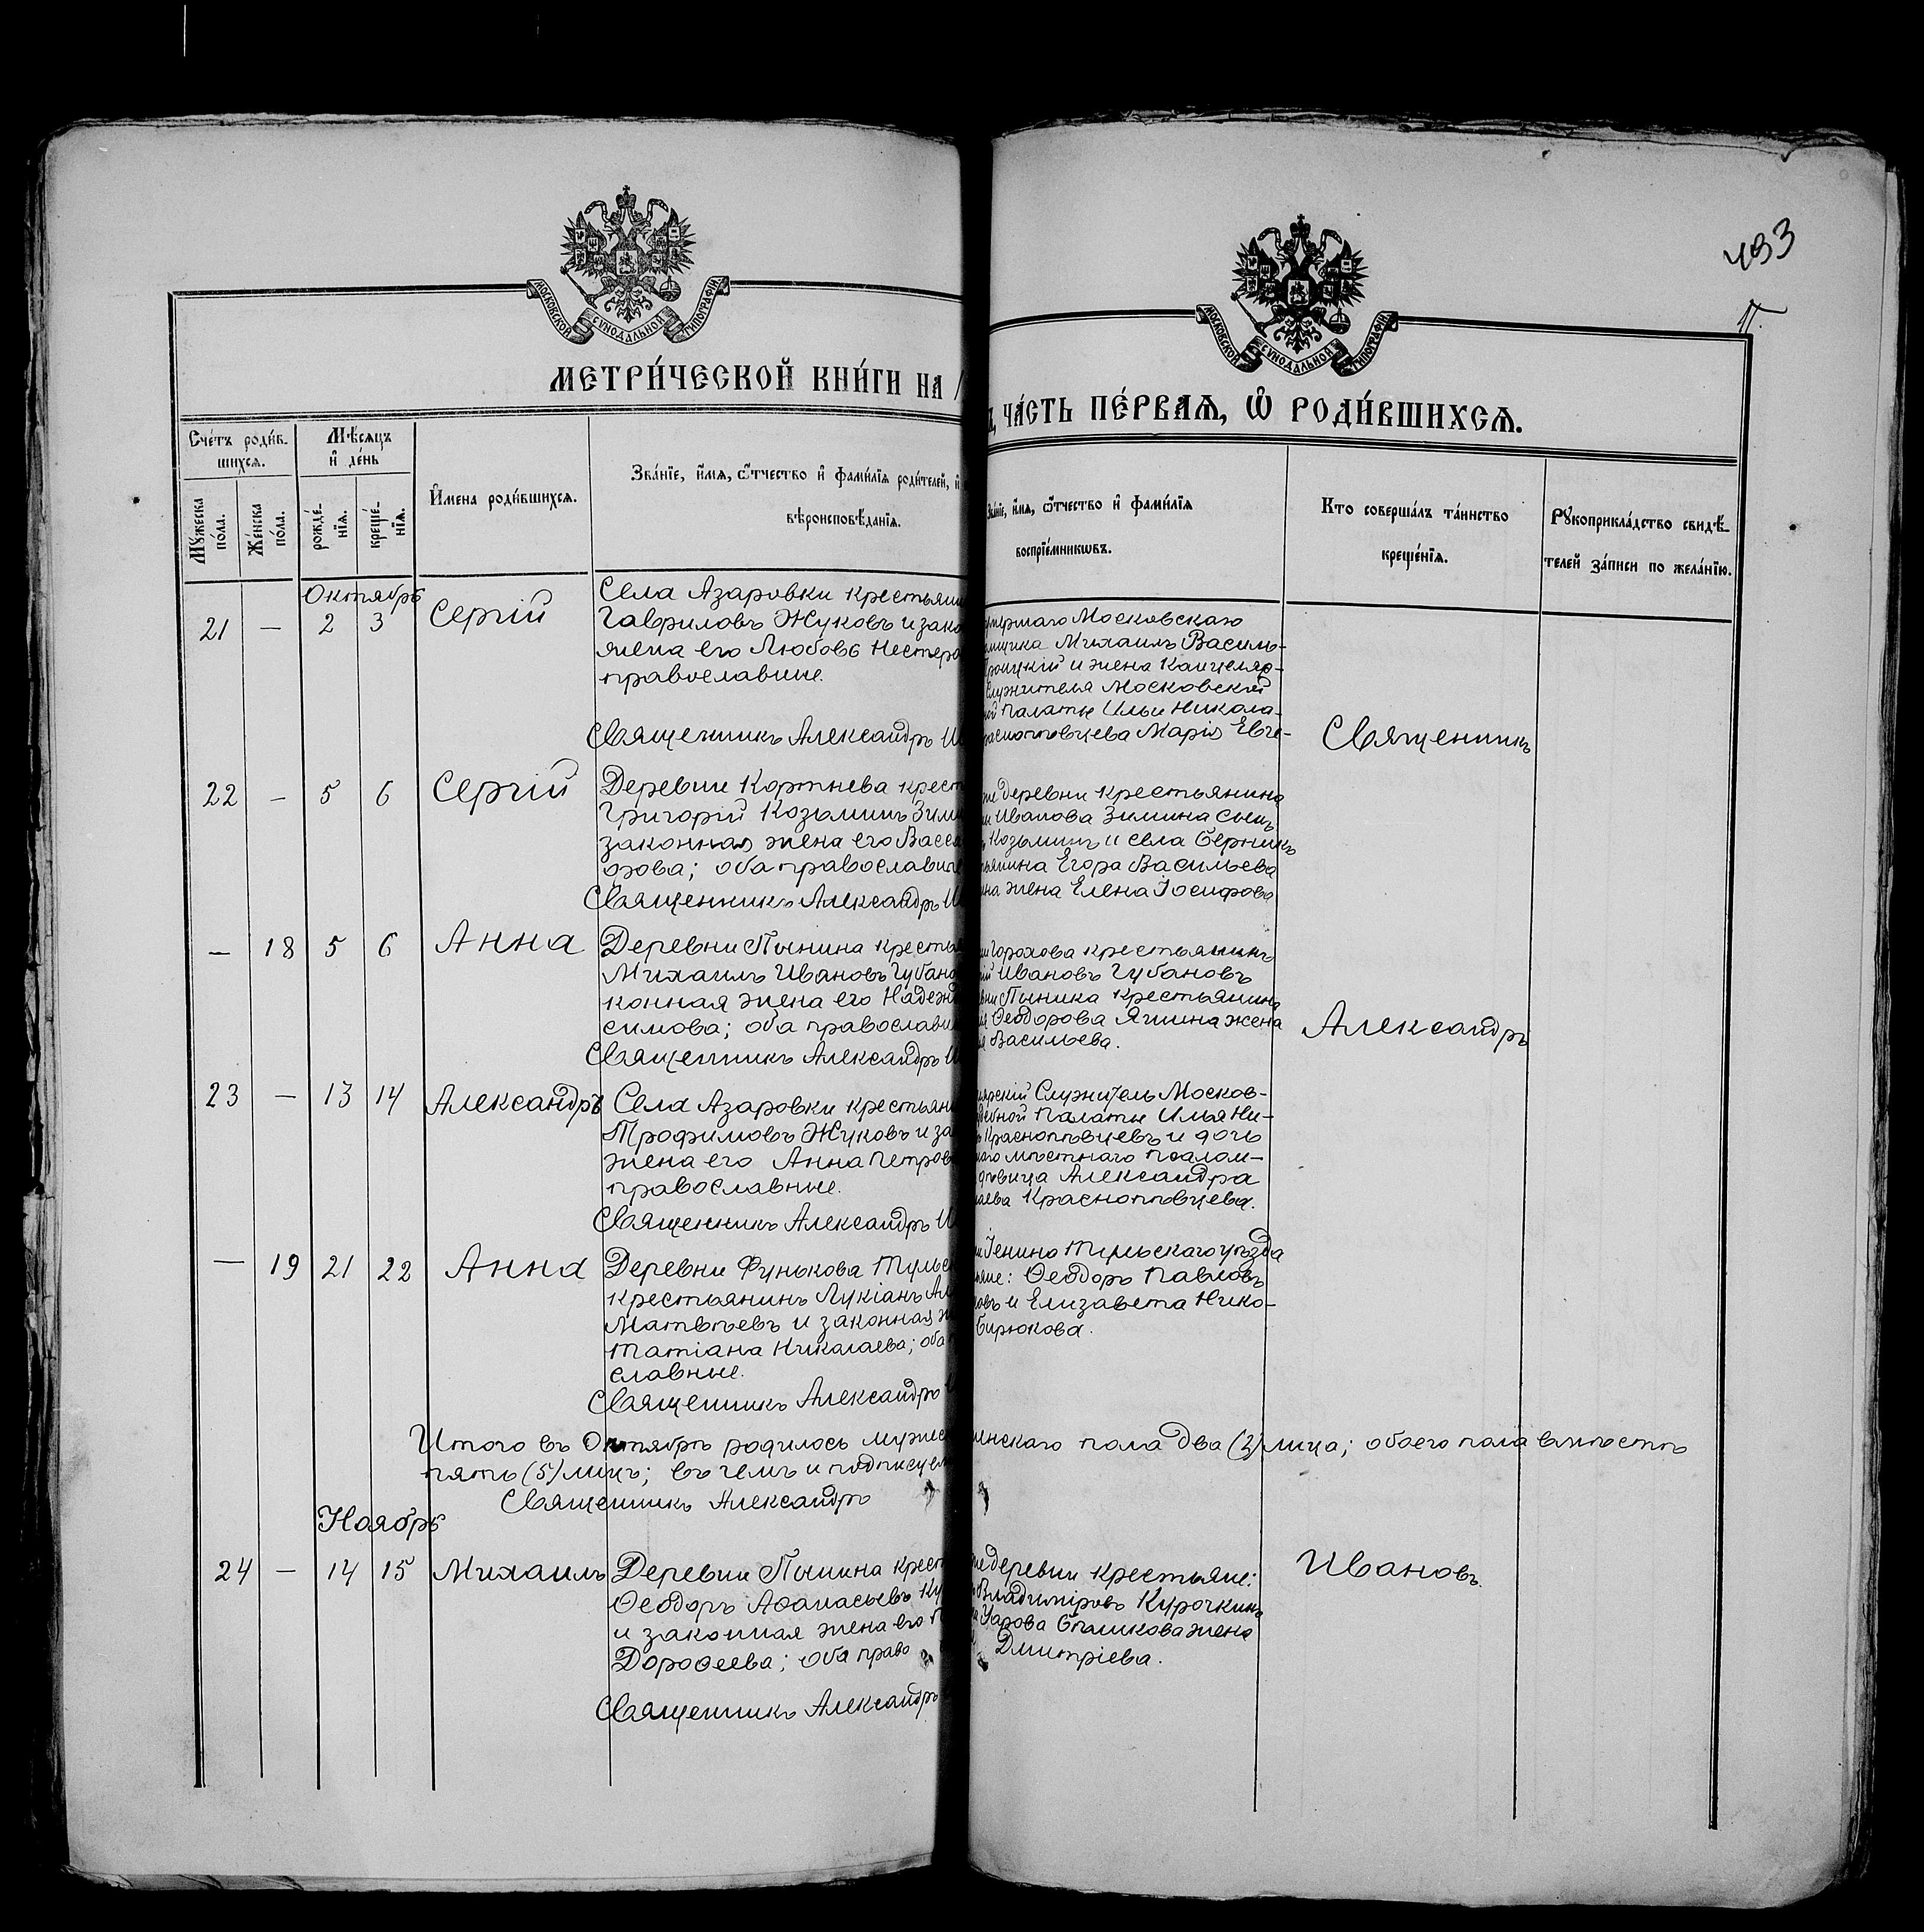 493
МОСКОВСКОЙ СѴНОДАЛЬНОЙ ТИПОГРАФІИ
МОСКОВСКОЙ СѴНОДАЛЬНОЙ ТИПОГРАФІИ
МЕТРИ́ЧЕСКОЙ КНИ́ГИ НА
ЧА́СТЬ ПЕ́РВАѦ, Ѡ҆ РОДИ́ВШИХСѦ.
Сче́тъ роди́в-
шихсѧ.
Мѣ́сѧцъ
и҆ де́нь
Мꙋ́жеска
по́ла.
Же́нска
по́ла.
рожде́-
нїѧ.
креще́-
нїѧ.
И҆мена роди́вшихсѧ.
Зва́нїе, и҆́мѧ, ѻ҆́тчество и҆ фами́лїѧ роди́телей, и҆
вѣроисповѣ́данїѧ.
Зва́нїе, и҆́мѧ, ѻ҆́тчество и҆ фами́лїѧ
воспрїе́мникѡвъ.
Кто соверша́лъ та́инство
креще́нїѧ.
Рꙋкоприкла́дство свидѣ́-
телей за́писи по жела́нїю.
Октябрь
21 — 2 3 Сергій
Села Азаровки крестьяни
Гавриловъ Жуковъ и зако
жена его Любовь Нестеро
православные.
Священникъ Александръ И
Московскаго
Михаилъ Василь-
Троицкій и жена Канцеляр-
служителя Московской
Палаты Ильи Никола-
Краснопѣвцева Марія Евге-
Священникъ
22 — 5 6 Сергій
Деревни Кортнева крест
Григорій Козьминъ Зим
законная жена его Васса
рова; оба православные
Священникъ Александръ И
же деревни крестьянина
Иванова Зимина сынъ
Козьминъ и села Берник
Егора Васильева
жена Елена Іосифова
— 18 5 6 Анна
Деревни Пынина кресть
Михаилъ Ивановъ Губано
конная жена его Надежд
симова; оба православн
Священникъ Александръ И
Горохова крестьянинъ
Ивановъ Губановъ
Пынина крестьянина
Ѳеодорова Яшина жена
Васильева.
Александръ
23 — 13 14 Александръ
Села Азаровки крестьян
Трофимовъ Жуковъ и за
жена его Анна Петров
православные.
Священникъ Александръ И
лярскій Служитель Москов-
дебной Палаты Илья Ни-
Краснопѣвцевъ и дочь
мѣстнаго псалом-
дѣвица Александра
лаева Краснопѣвцева.
— 19 21 22 Анна
Деревни Фунькова Тульс
крестьянинъ Лукіанъ Ал
Матвѣевъ и законная ж
Татіана Николаева; оба
славные.
Священникъ Александръ
Генино Тульскаго уѣзда
Ѳеодоръ Павловъ
и Елизавета Нико-
Бирюкова.
Итого въ Октябрѣ родилось мужес
пять (5) лицъ; въ чемъ и подписуем
Священникъ Александръ
женскаго пола два (2) лица; обоего пола вмѣстѣ
Ноябрь
24 — 14 15 Михаилъ
Деревни Пынина крест
Ѳеодоръ Аѳанасьевъ Ку
и законная жена его
Дороѳеева; оба право
Священникъ Александръ
же деревни крестьяне:
Владиміровъ Курочкинъ
Уарова Спашкова жена
Дмитріева.
Ивановъ.